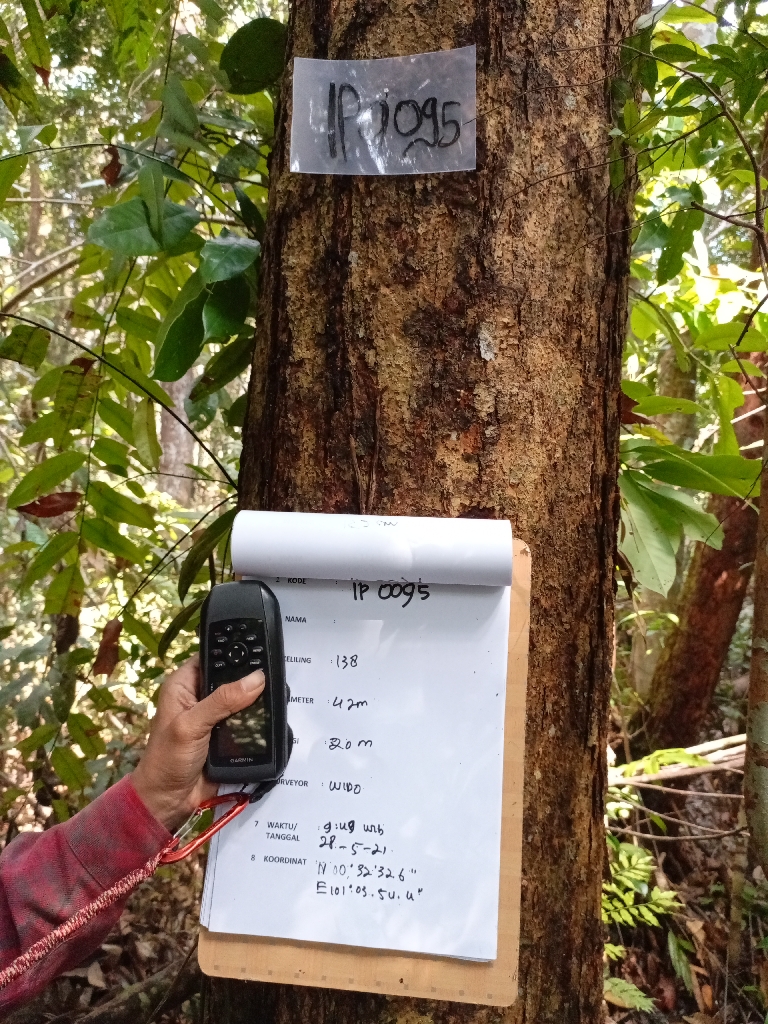 IP 0095
KODE : IP 0095
NAMA :
KELILING : 138
METER : 42m
GI : 20 m
URVEYOR : WIDO
7 WAKTU/ : 9:49 WIB
TANGGAL 28-5-21.
8 KOORDINAT N 00°32'32.6"
E 101°03.54.4"
GARMIN